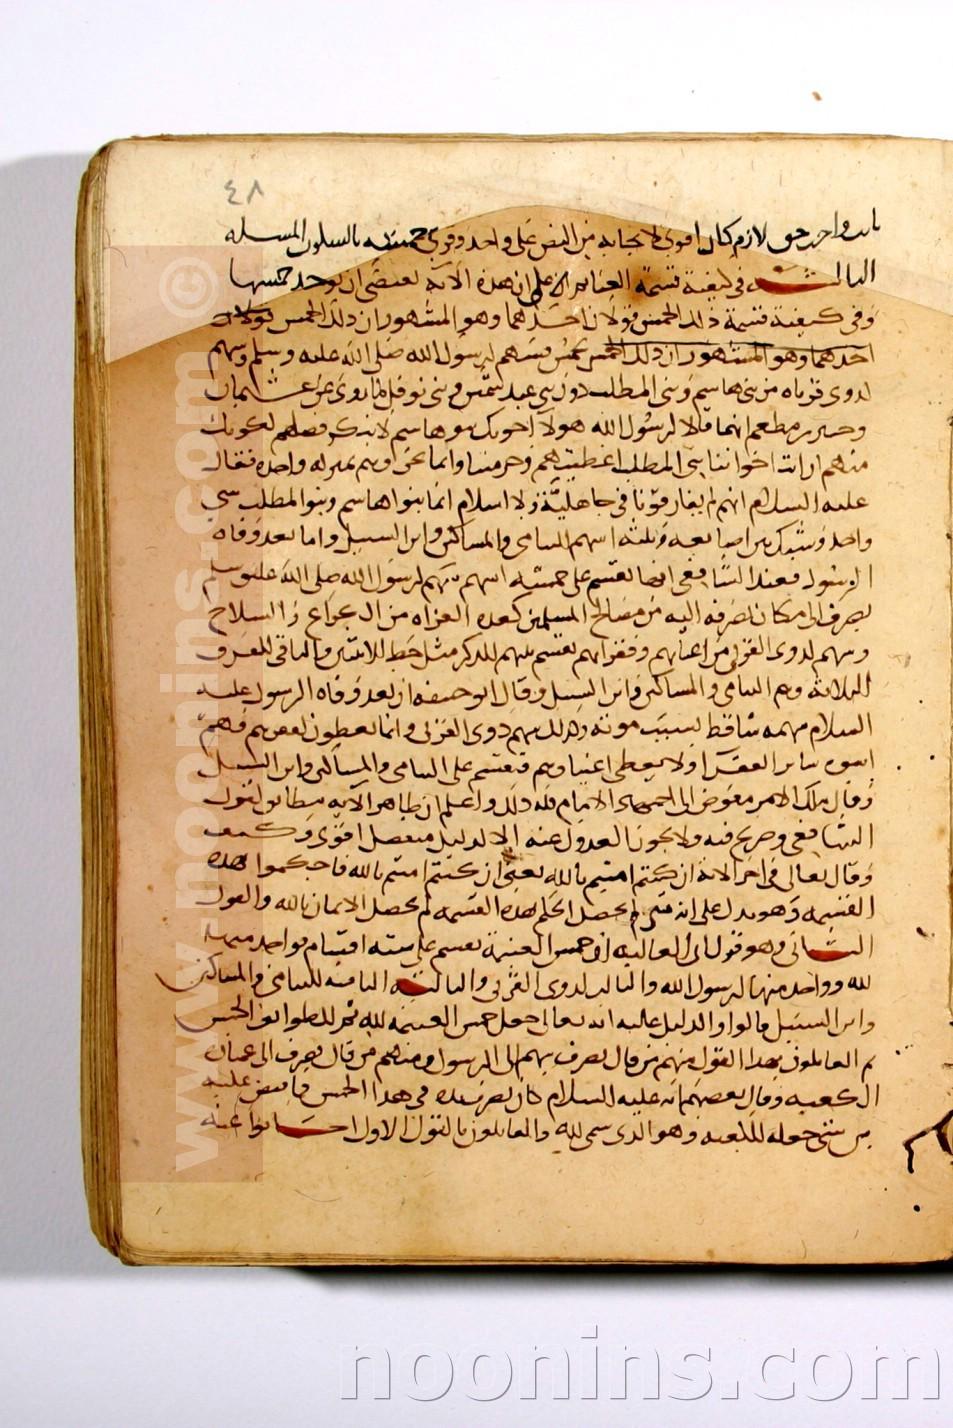 ٤٨
ثابت واحد حق لازم كان اقوى لايجابه من النص على واحد وقرى خمسه بالسكون المسله
الثالثه في كيفية قسمة الغنايم اعلم ان هذه الآية تقتضى ان يوخذ خمسها
وفى كيفية قسمة ذلك الخمس قولان احدهما وهو المشهور ان ذلك الخمس قولان
احدهما وهو المشهور ان ذلك الخمس يخمس فسهم لرسول الله صلى الله عليه وسلم وسهم
لذوى قرباه من بنى هاشم وبنى المطلب دون بنى عبد شمس وبنى نوفل لما روى عن عثمان
وجبير بن مطعم انهما قالا لرسول الله هولآ اخوتك بنو هاشم لا ينكر فضلهم لكونك
منهم ارايت اخواننا بنى المطلب اعطيتهم وحرمتنا وانما نحن وهم بمنزله واحده فقال
عليه السلام انهم لم يفارقونا فى جاهليّة ولا اسلام انما بنوا هاشم وبنوا المطلب شي
واحد وشبك بين اصابعه وثلثه اسهم لليتامى والمساكين وابن السبيل واما بعد وفاه
الرسول فعند الشافعى انها تقسم على خمسه اسهم سهم لرسول الله صلى الله عليه وسلم
يصرف الى ما كان يصرفه اليه من مصالح المسلمين كعده الغزاه من الكراع والسلاح
وسهم لذوى القربى من اغنيايهم وفقرايهم يقسم بينهم للذكر مثل حظ الانثيين والباقى للفرق
الثلاثه وهم اليتامى والمساكين وابن السبيل وقال ابو حنيفه ان بعد وفاه الرسول عليه
السلام سهمه ساقط بسبب موته وكذلك سهم ذوى القربى وانما يعطون لفقرهم فهم
اسوه ساير الفقرا ولا يعطى اغنياوهم فيقسم على اليتامى والمساكين وابن السبيل
وقال ملك الامر مفوض الى الامام واعلم ان ظاهر الآيه مطابق لقول
الشافعى وصريح فيه ولا يجوز العدول عنه الا لدليل منفصل اقوى وكيف
وقال تعالى فى اخر الاية ان كنتم امنتم بالله يعنى ان كنتم امنتم بالله فاحكموا بهذه
القسمه وهو يدل على انه متى لم يحصل الحكم بهذه القسمه لم يحصل الايمان بالله والقول
الثانى وهو قول ابى العاليه ان خمس الغنيمة يقسم على سته اقسام فواحد منها
لله وواحد منها لرسول الله والثالث لذوى القربى والثالثه الباقيه لليتامى والمساكين
وابن السبيل قالوا والدليل عليه انه تعالى جعل خمس الغنيمه لله ثم للطوايف الخمس
ثم القايلون بهذا القول منهم من قال يصرف سهم الله الى الرسول ومنهم من قال يصرف الى عمارة
الكعبه وقال بعضهم انه عليه السلام كان يضرب يده فى هذا الخمس فما قبض عليه
من شى جعله للكعبه وهو الذى سمى لله والقايلون بالقول الاول اجابوا عنه
www.noonins.com ©
noonins.com